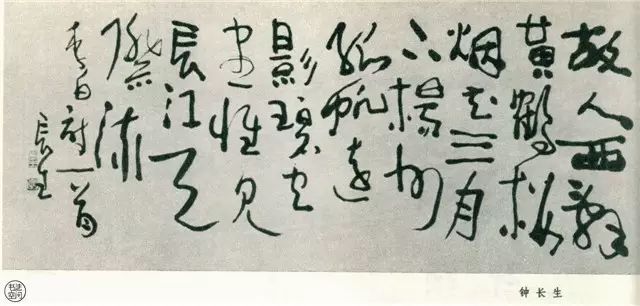 故人西辭
黄鶴樓
烟花三月
下揚州
孤帆遠
影碧空
盡惟見
長江天
際流
李白詩一首
長生
钟长生